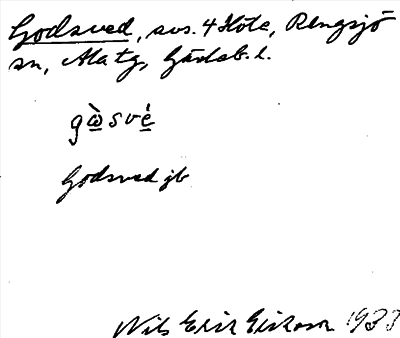 Godsved, avs. 4 Höle, Rengsjö
sn, Ala tg, Gävleb. l.
gɷ̀své
Godsved jb
Nils Erik Erikson 1933